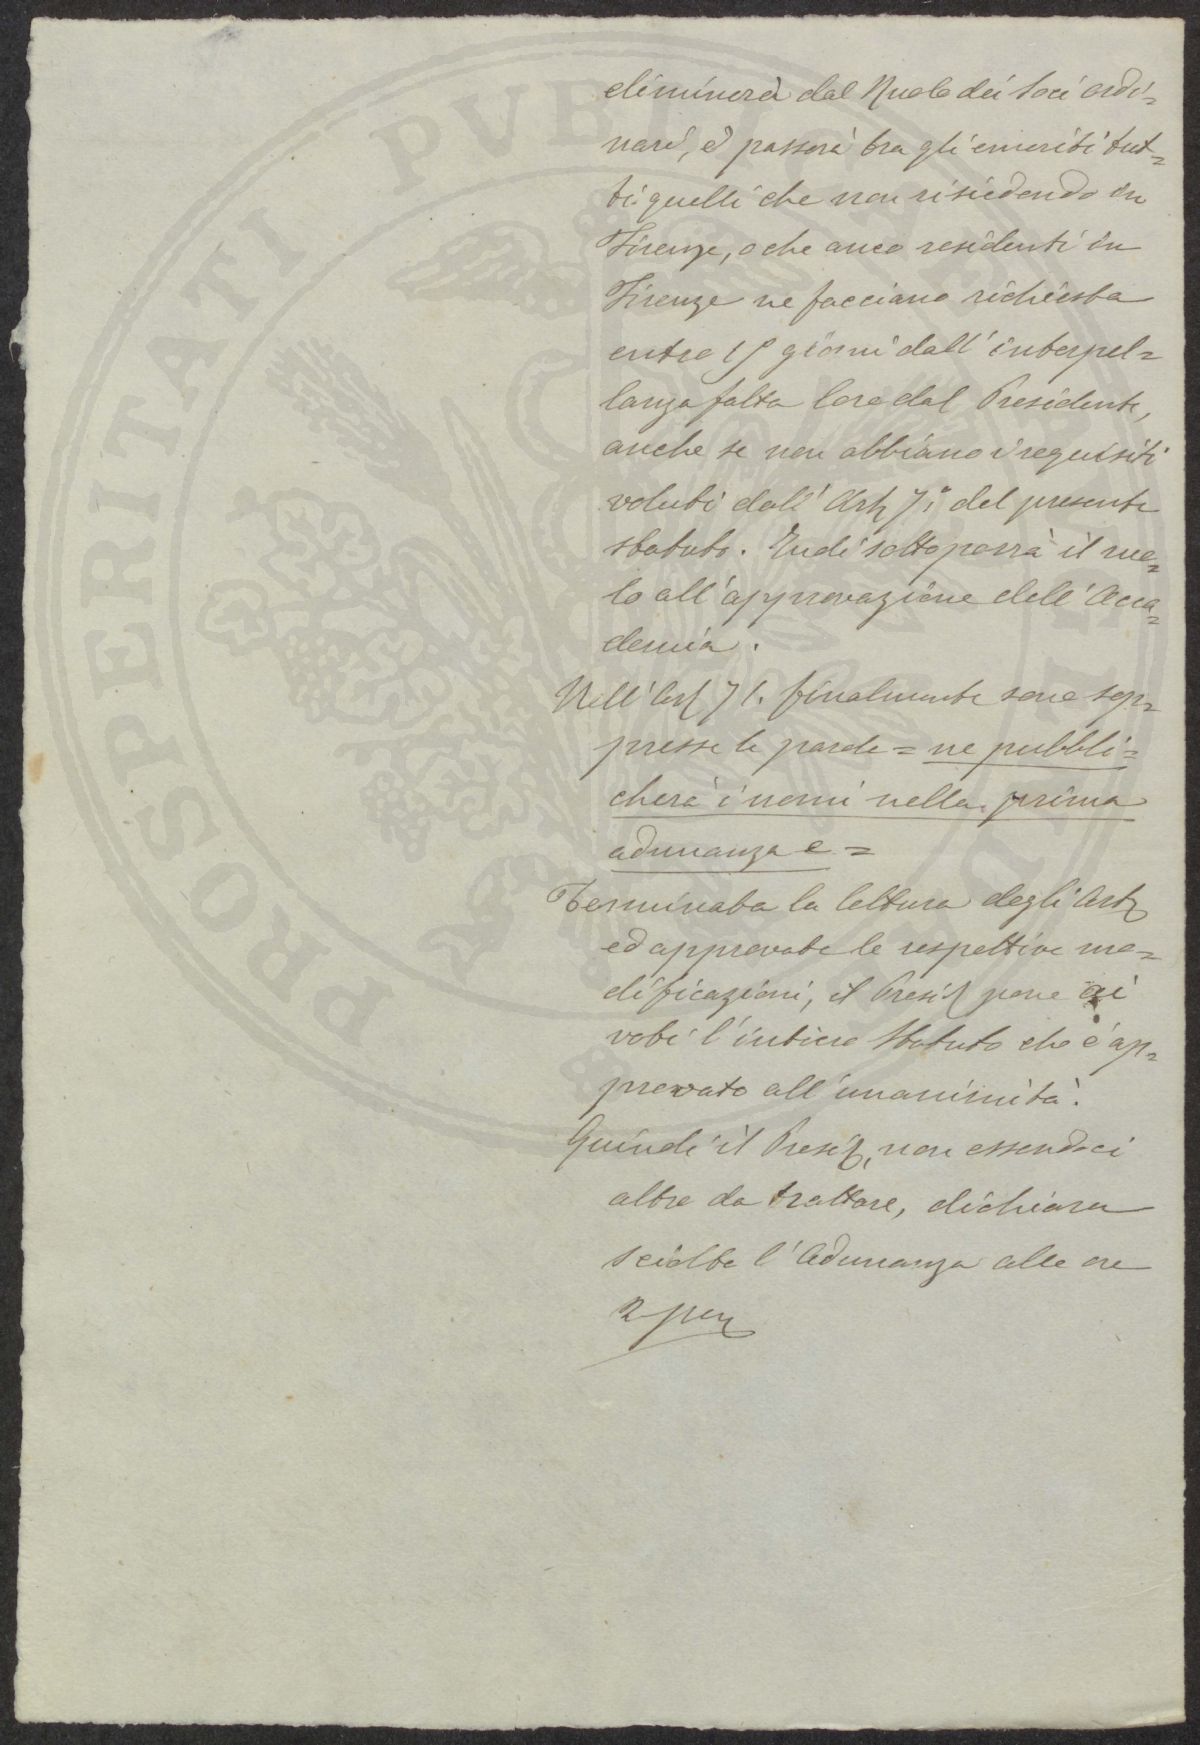 eliminerà dal Ruolo dei Soci ordi=
nari, e passerà tra gli emeriti tut=
ti quelli che non risiedendo in
Firenze, o che anco residenti in
Firenze ne facciano richiesta
entro 15 giorni dall' interpel=
lanza fatta loro dal Presidente,
anche se non abbiano i requisiti
voluti dall' Art 7.° del presente
Statuto. Indi sottoporrà il ruo=
lo all' approvazione dell' Acca=
demia.
Nell' Art 71. finalmente sono sop=
presse le parole = ne pubbli=
cherà i nomi nella prima
adunanza e =
Terminata la lettura degli Art
ed approvate le respettive mo=
dificazioni, il Presid pone ai
voti l' intiero Statuto che è ap=
provato all' unanimità.
Quindi il Presid, non essendoci
altro da trattare, dichiara
sciolta l' Adunanza alle ore
2 pom
PROSPERITATI PUBLICAE